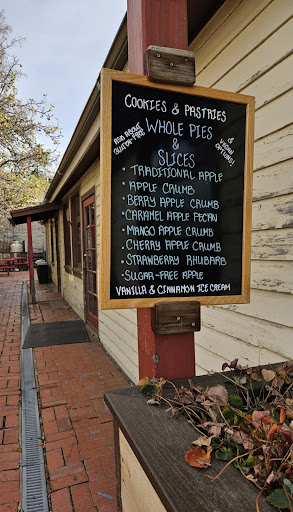 COOKIES & PASTRIES
ASK ABOUT
GLUTEN FREE
WHOLE PIES
&
SLICES
& VEGAN
OPTIONS!
• TRADITIONAL APPLE
• APPLE CRUMB
• BERRY APPLE CRUMB
• CARAMEL APPLE PECAN
• MANGO APPLE CRUMB
• CHERRY APPLE CRUMB
• STRAWBERRY RHUBARB
• SUGAR-FREE APPLE
VANILLA & CINNAMON ICE CREAM